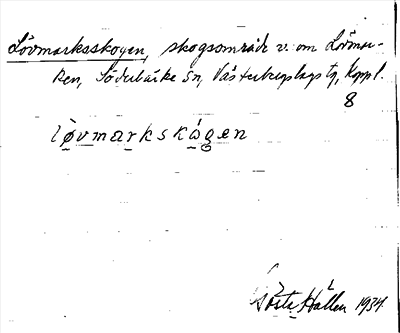 Lövmarksskogen, skogsområde v. om Lövmar-
ken, Söderbärke Sn, Västerbergslags tg, Kppl.
8
lòvmarkskógen
Gösta Hallen 1934